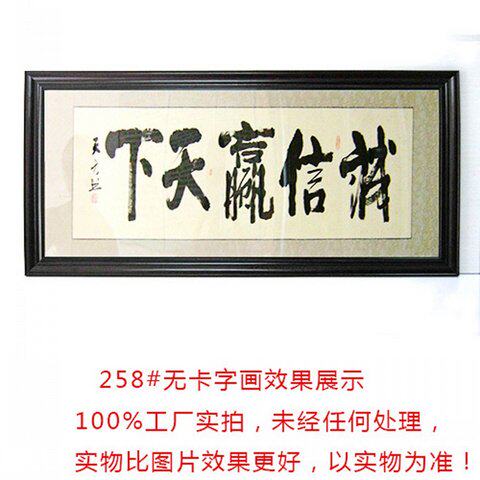 誠信贏天下
258#无卡字画效果展示
100%工厂实拍，未经任何处理，
实物比图片效果更好，以实物为准！